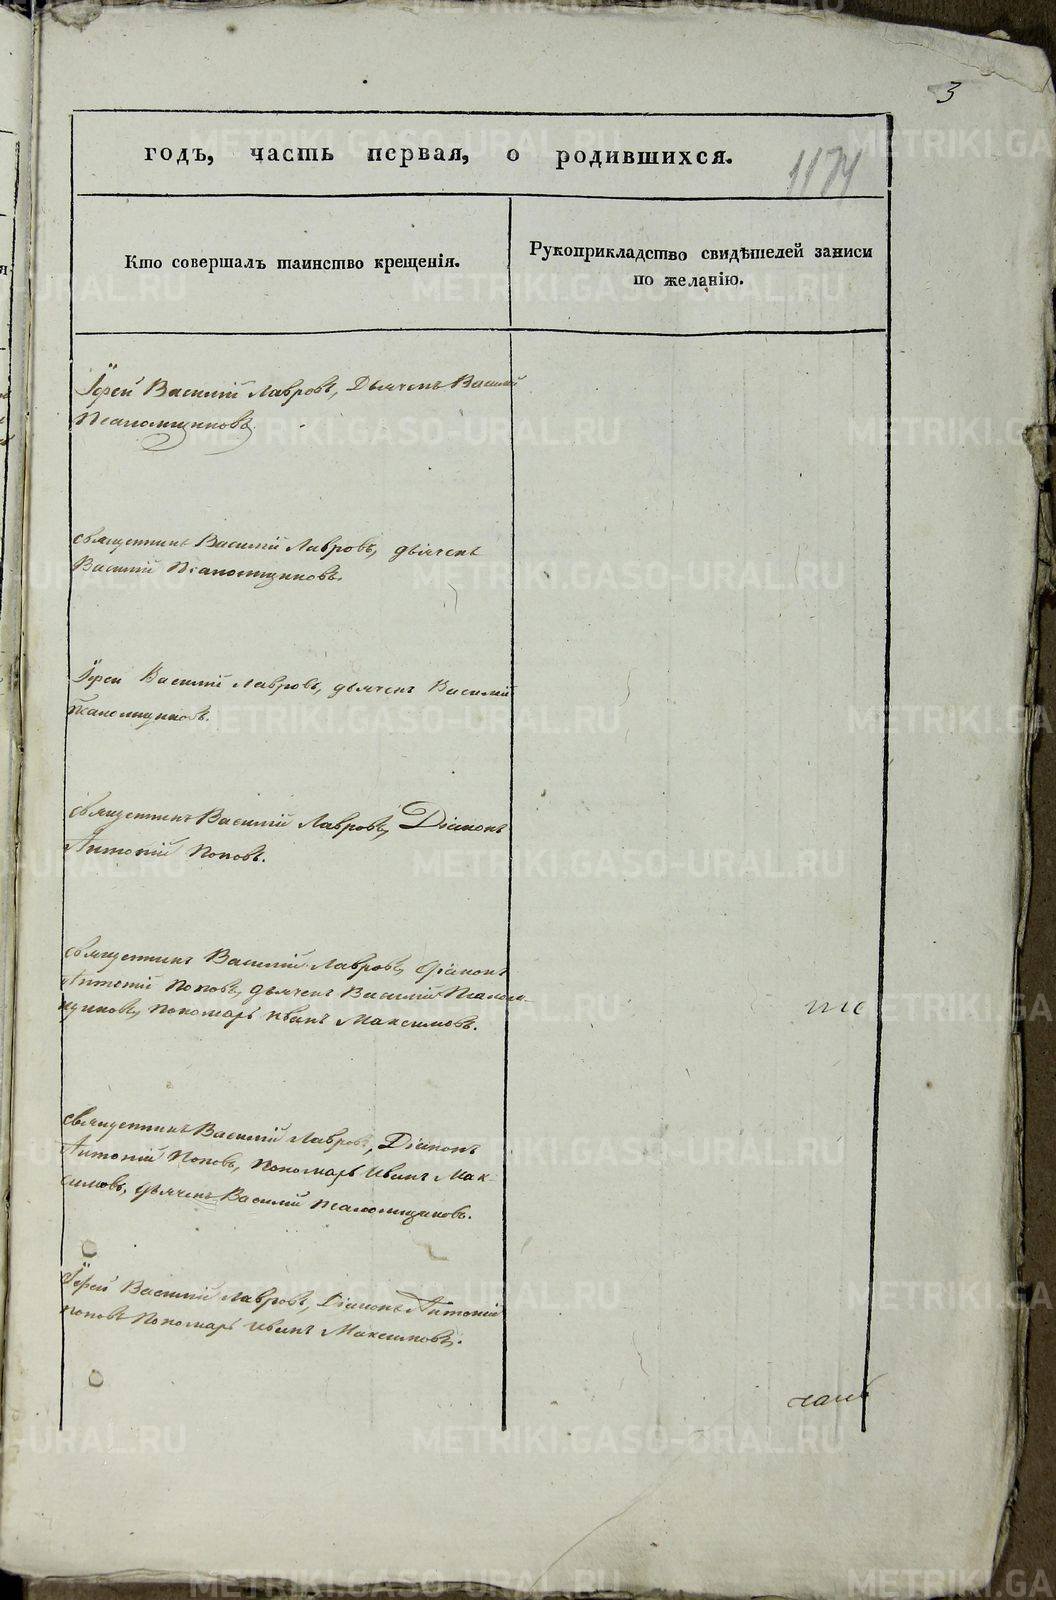 3
годъ, часть первая, о родившихся.
1174
Кто совершалъ таинство крещенія.
Рукоприкладство свидѣтелей записи
по желанію.
Іерей Василій Лавровъ, Дьячекъ Василій
Псаломщиковъ.
священникъ Василій Лавровъ, дьячекъ
Василій Псаломщиковъ.
Іерей Василій Лавровъ, дьячекъ Василій
Псаломщиковъ.
священникъ Василій Лавровъ, Діаконъ
Антоній Поповъ.
священникъ Василій Лавровъ, Діаконъ
Антоній Поповъ, дьячекъ Василій Псалом-
щиковъ, пономарь Иванъ Максимовъ.
священникъ Василій Лавровъ, Діаконъ
Антоній Поповъ, пономарь Иванъ Мак-
симовъ, дьячекъ Василій Псаломщиковъ.
Іерей Василій Лавровъ, Діаконъ Антоній
Поповъ Пономарь Иванъ Максимовъ.
METRIKI.GASO-URAL.RU